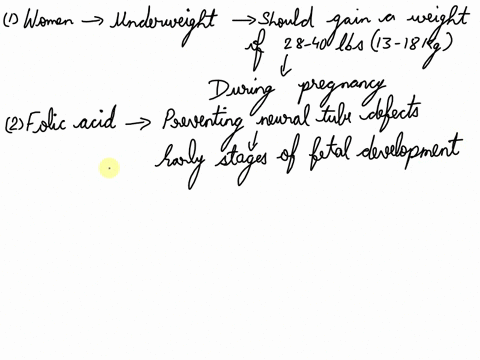 (1) Women → Underweight → Should gain a weight
of 28-40 lbs (13-18 Kg)
↓
During pregnancy
(2) Folic acid → Preventing neural tube defects
↓
Early stages of fetal development